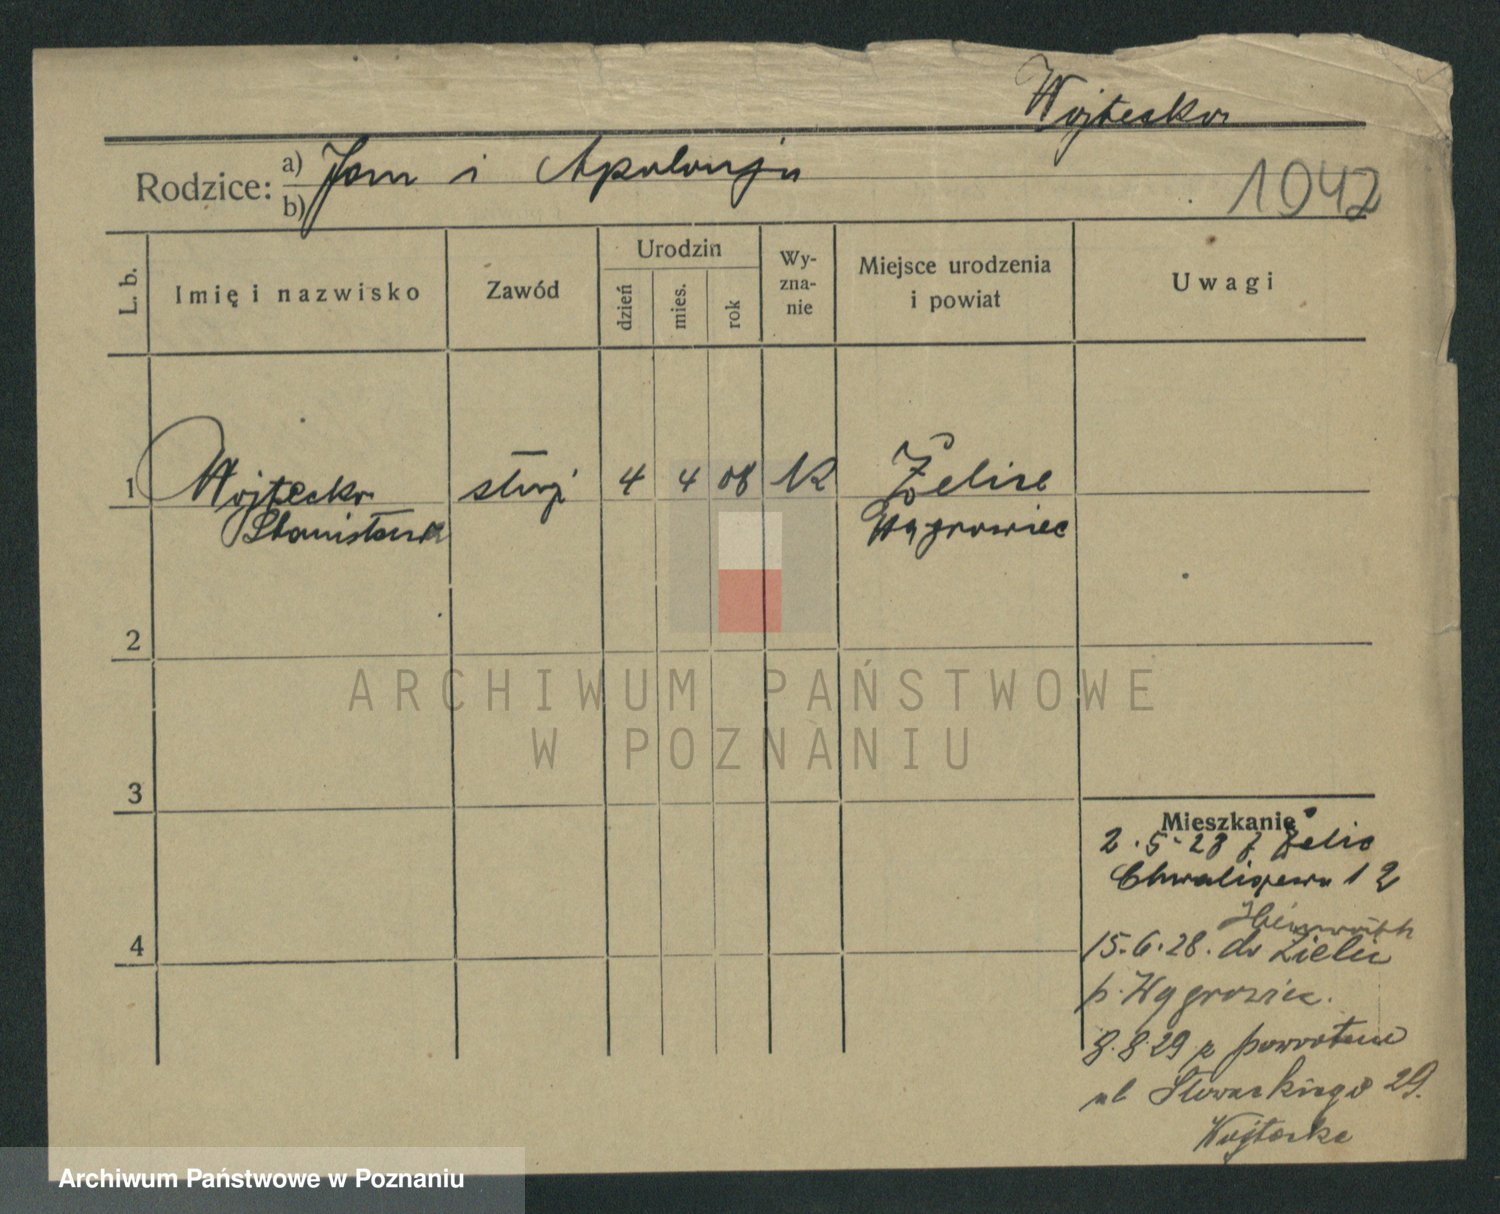 Wojtecka
Rodzice: a) Jan i Apolonja
b)
1942
L. b.
Imię i nazwisko
Zawód
Urodzin
dzień
mies.
rok
Wy-
zna-
nie
Miejsce urodzenia
i powiat
Uwagi
1 Wojtecka służ 4 4 08 K Żelice
Stanisława Wągrowiec
2
3
4
Mieszkanie
2.5.28 z Żelic
12
15.6.28. do Żelic
p. Wągrowiec.
8.8.29 z powrotem
ul Słowackiego 29.
Wojtecka
ARCHIWUM PAŃSTWOWE
W POZNANIU
Archiwum Państwowe w Poznaniu